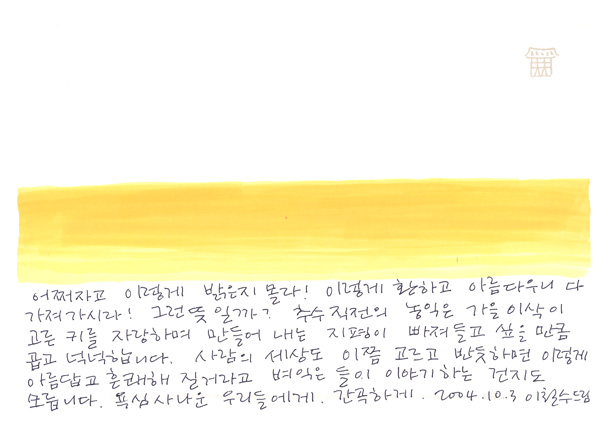 어쩌자고 이렇게 밝은지 몰라! 이렇게 환하고 아름다우니 다
가져가시라! 그런 뜻일까? 추수 직전의 농익은 가을 이삭이
고른 키를 자랑하며 만들어 내는 지평이 빠져들고 싶을 만큼
곱고 넉넉합니다. 사람의 세상도 이쯤 고르고 반듯하면 이렇게
아름답고 흔쾌해 질거라고 벼익은 들이 이야기하는 건지도
모릅니다. 욕심 사나운 우리들에게. 간곡하게. 2004.10.3 이철수드림